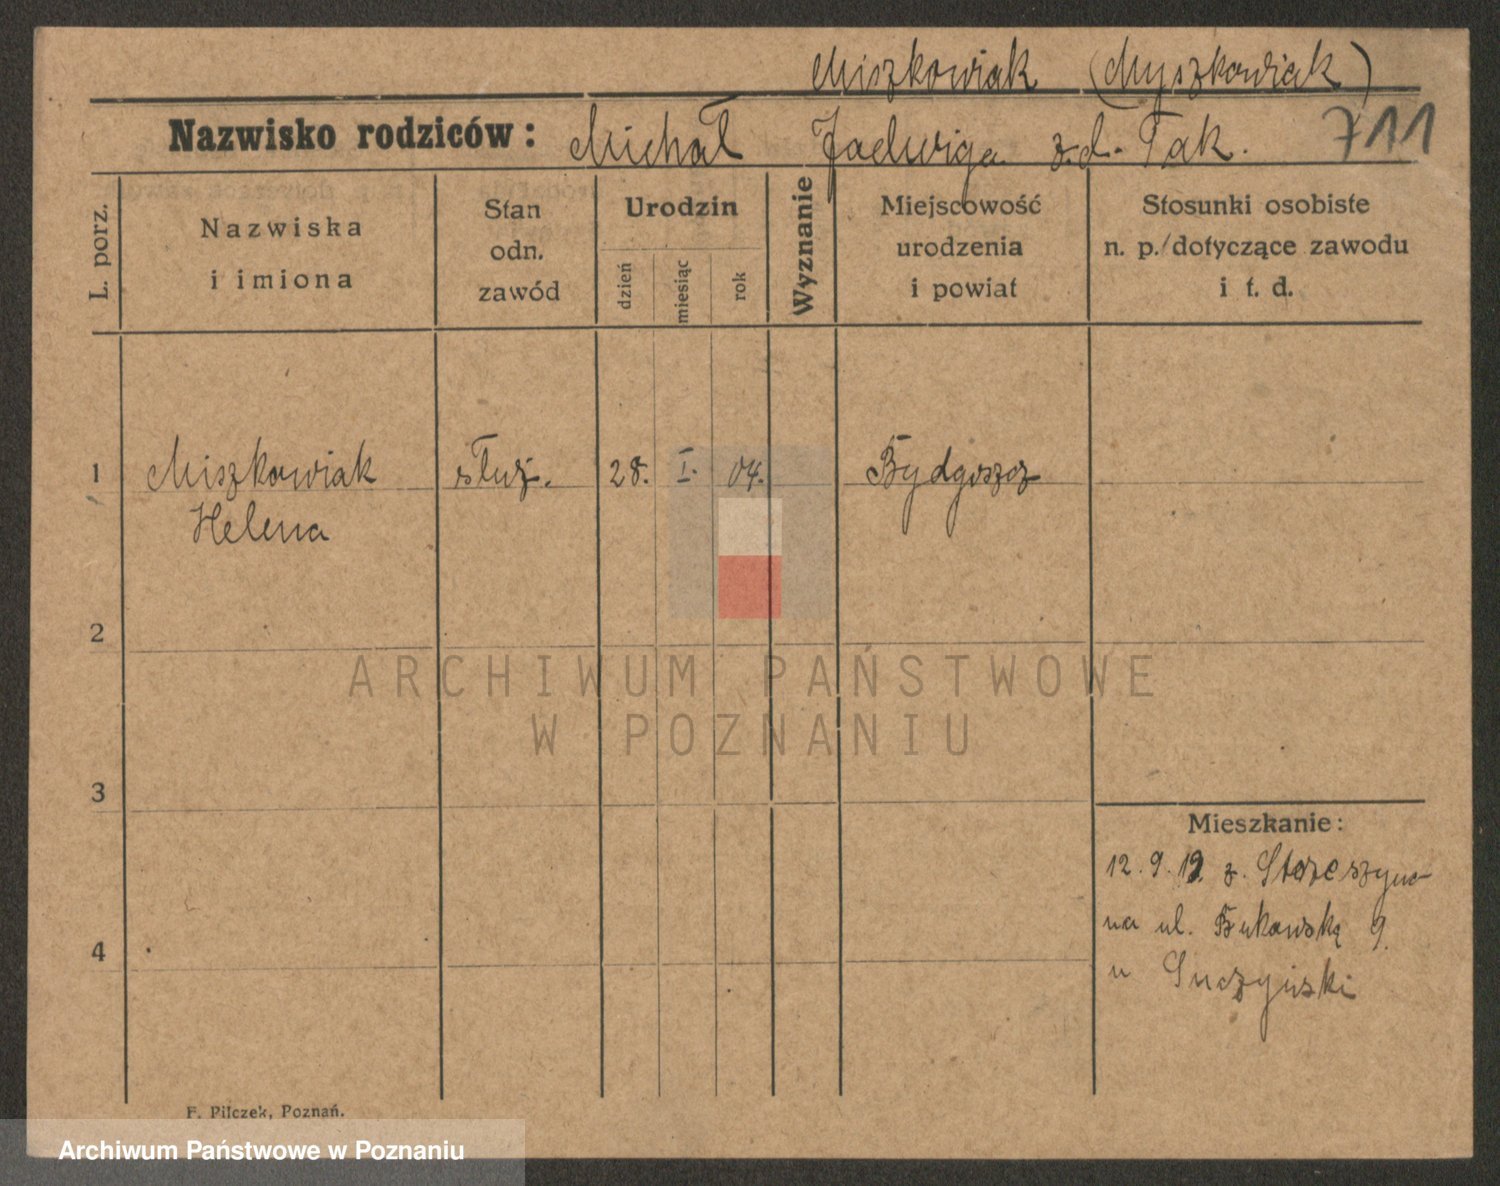 Miszkowiak (Myszkowiak)
Nazwisko rodziców: Michał Jadwiga z.d. Tak.
711
L. porz.
Nazwiska
i imiona
Stan
odn.
zawód
Urodzin
dzień
miesiąc
rok
Wyznanie
Miejscowość
urodzenia
i powiat
Stosunki osobiste
n. p./dotyczące zawodu
i t. d.
1 Miszkowiak służ. 28. I. 04. Bydgoszcz
Helena
2
3
4
ARCHIWUM PAŃSTWOWE
W POZNANIU
Mieszkanie:
12. 9. 19. z.
na ul. Bukowską 9
u
F. Pilczek, Poznań.
Archiwum Państwowe w Poznaniu